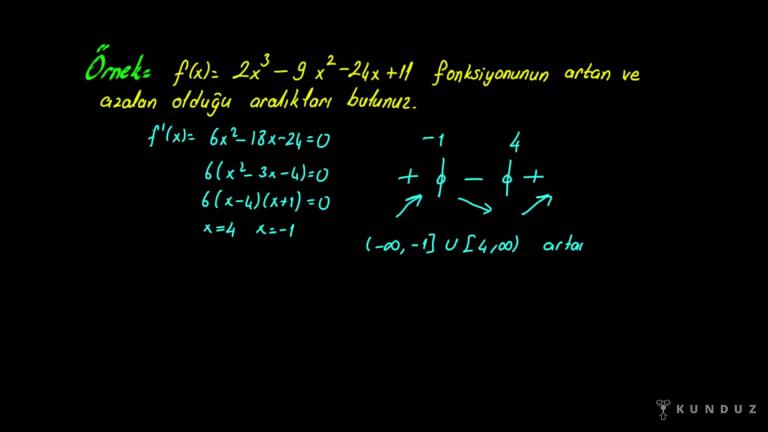 Örnek= f(x)= 2x³ - 9x² - 24x + 11 fonksiyonunun artan ve
azalan olduğu aralıkları bulunuz.
f'(x)= 6x² - 18x - 24 = 0
6(x² - 3x - 4) = 0
6(x-4)(x+1) = 0
x=4 x=-1
-1 4
+ - +
(-∞, -1] ∪ [4, ∞) artar
KUNDUZ